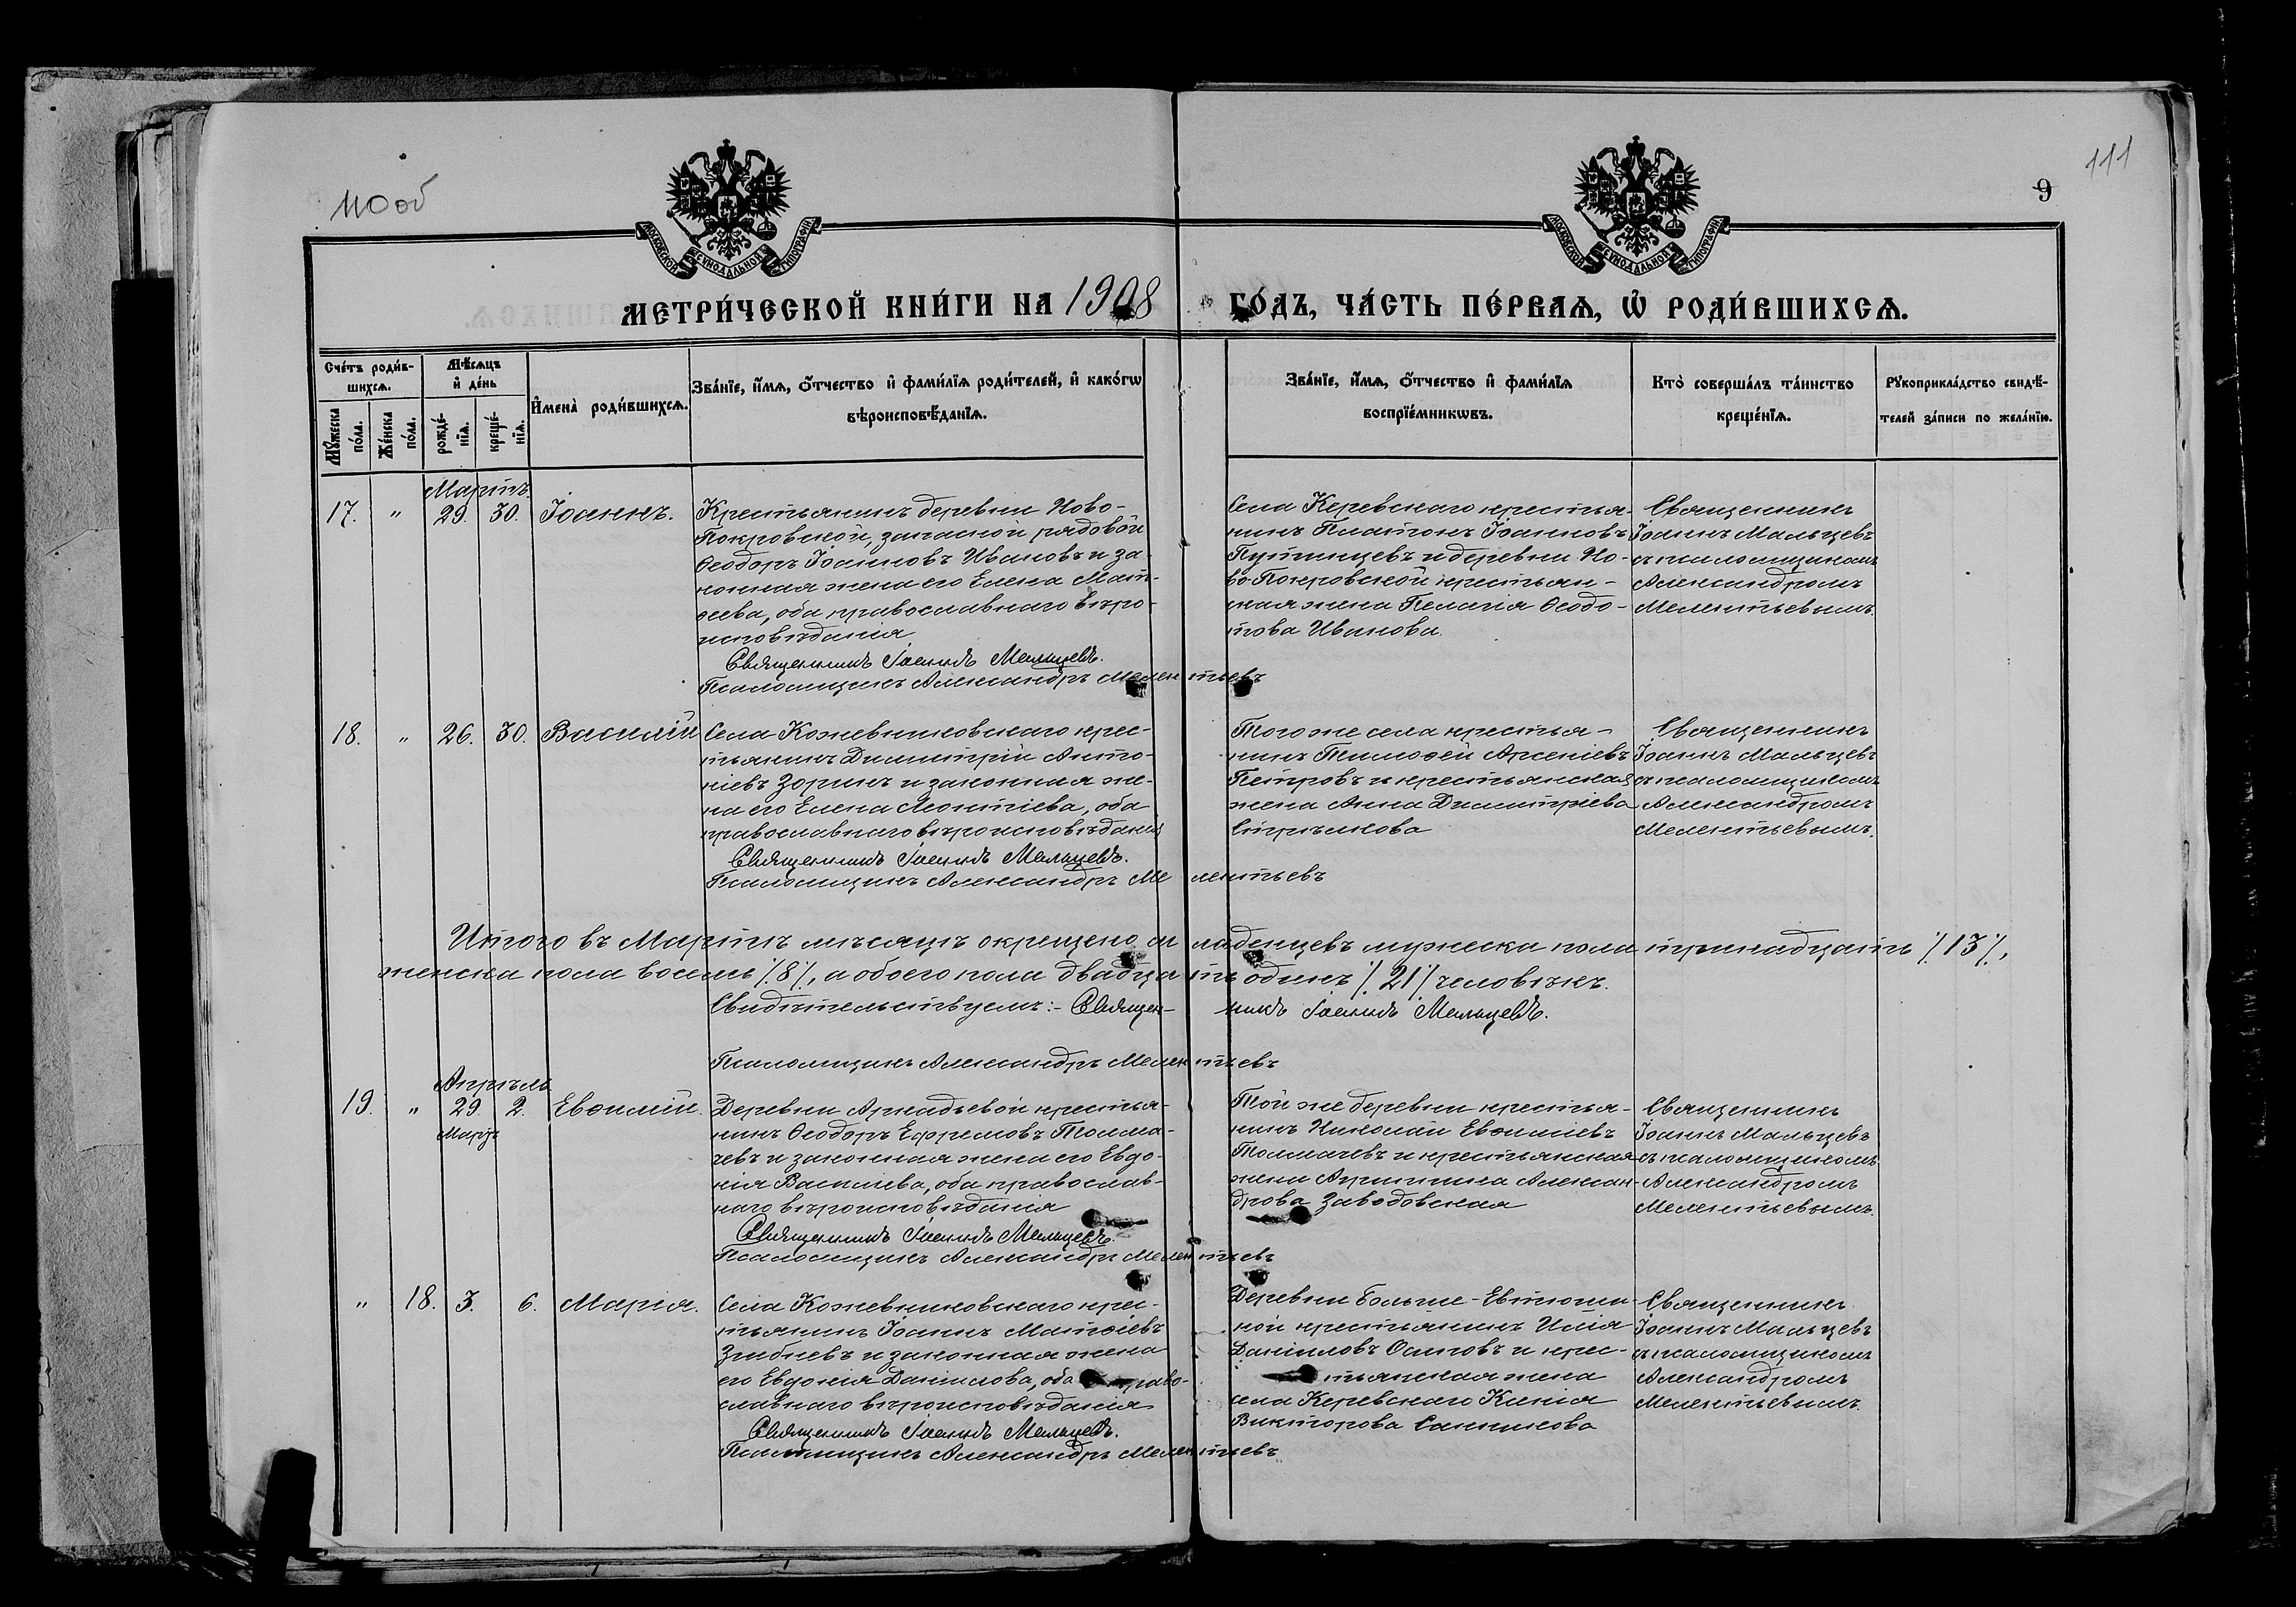 110 об
111
9
МОСКОВСКОЙ СѴНОДАЛЬНОЙ ТИПОГРАФІИ
МОСКОВСКОЙ СѴНОДАЛЬНОЙ ТИПОГРАФІИ
МЕТРИ́ЧЕСКОЙ КНИ́ГИ НА 1908 ГО́ДЪ, ЧА́СТЬ ПЕ́РВАЯ, Ѿ РОДИ́ВШИХСѦ.
Сче́тъ роди́в-
шихсѧ.
Мꙋ́жеска по́ла.
Же́нска по́ла.
Мѣ́сяцъ
и҆ де́нь
рожде́-
нїѧ.
креще́-
нїѧ.
И҆мена̀ роди́вшихсѧ.
Зва́нїе, и҆́мѧ, ѻ҆́тчество и҆ фами́лїѧ роди́телей, и҆ како́гѡ
вѣроисповѣ́данїѧ.
Зва́нїе, и҆́мѧ, ѻ҆́тчество и҆ фами́лїѧ
воспрїе́мникѡвъ.
Кто̀ соверша́лъ та́инство
креще́нїѧ.
Рꙋкоприкла́дство свидѣ́-
телей за́писи по жела́нїю.
Мартъ
17. " 29. 30. Іоаннъ.
Крестьянинъ деревни Ново-
Покровской, запасной рядовой
Ѳеодоръ Іоанновъ Ивановъ и за-
конная жена его Елена Мат-
ѳеева, оба православнаго вѣро-
исповѣданія
Священникъ Іоаннъ Мальцевъ.
Псаломщикъ Александръ Мелентьевъ
Села Керевскаго крестья-
нинъ Платонъ Іоанновъ
Путинцевъ и деревни Но-
во-Покровской крестьян-
ская жена Пелагія Ѳеодо-
това Иванова.
Священникъ
Іоаннъ Мальцевъ
съ псаломщикомъ
Александромъ
Мелентьевымъ.
18. " 26. 30. Василій
Села Кожевниковскаго крес-
тьянинъ Димитрій Анто-
ніевъ Зоринъ и законная же-
на его Елена Леонтіева, оба
православнаго вѣроисповѣданія
Священникъ Іоаннъ Мальцевъ.
Псаломщикъ Александръ Мелентьевъ
Того же села крестья-
нинъ Тимоѳей Арсеніевъ
Петровъ и крестьянская
жена Анна Димитріева
Стрѣлкова
Священникъ
Іоаннъ Мальцевъ
съ псаломщикомъ
Александромъ
Мелентьевымъ.
Итого въ Мартѣ мѣсяцѣ окрещено младенцевъ мужеска пола тринадцать ⁒ 13 ⁒,
женска пола восемь ⁒ 8 ⁒, а обоего пола двадцать одинъ ⁒ 21 ⁒ человѣкъ.
Свидѣтельствуемъ:- Священ- никъ Іоаннъ Мальцевъ.
Псаломщикъ Александръ Мелентьевъ
Апрѣль
19. " 29. 2. Евѳимій.
Мартъ
Деревни Аркадьевой крестья-
нинъ Ѳеодоръ Ефремовъ Толма-
чевъ и законная жена его Евдо-
кія Василіева, оба православ-
наго вѣроисповѣданія
Священникъ Іоаннъ Мальцевъ.
Псаломщикъ Александръ Мелентьевъ
Той же деревни крестья-
нинъ Николай Евѳиміевъ
Толмачевъ и крестьянская
жена Агриппина Алексан-
дрова Заводовская
Священникъ
Іоаннъ Мальцевъ
съ псаломщикомъ
Александромъ
Мелентьевымъ.
" 18. 3. 6. Марія.
Села Кожевниковскаго крес-
тьянинъ Іоаннъ Матѳіевъ
и законная жена
его Евдокія Даніилова, оба право-
славнаго вѣроисповѣданія
Священникъ Іоаннъ Мальцевъ.
Псаломщикъ Александръ Мелентьевъ
Деревни Больше-
ной крестьянинъ Илія
Данииловъ Осиповъ и крес-
тьянская жена
села Керевскаго Ксенія
Викторова Санникова
Священникъ
Іоаннъ Мальцевъ
съ псаломщикомъ
Александромъ
Мелентьевымъ.